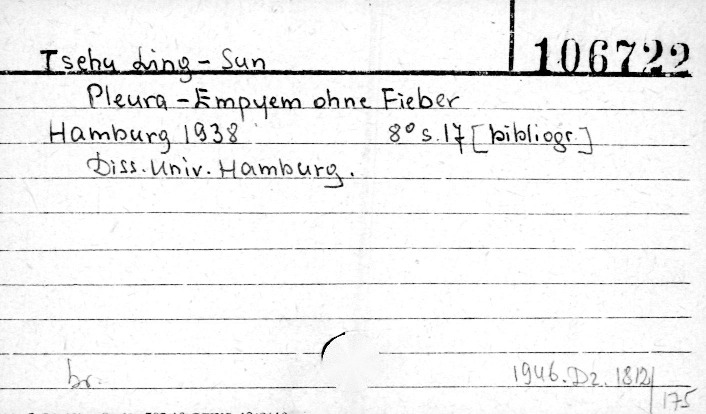 106722
Tsehu Ling-Sun
Pleura-Empyem ohne Fieber
Hamburg 1938 8° s.17 [bibliogr.]
Diss. Univ. Hamburg.
br.
1946. Dz. 1812/175